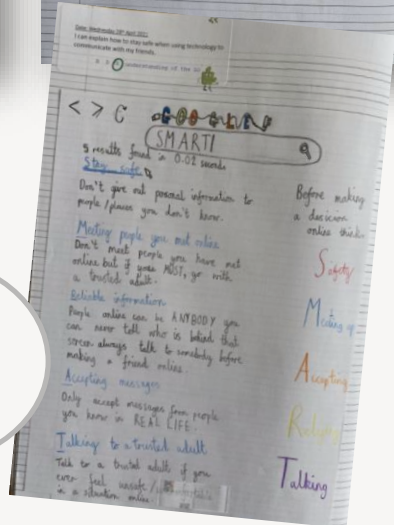 Date: Wednesday 28th April 2021
I can explain how to stay safe when using technology to
communicate with my friends.
understanding of the
< > C GOOGLE
SMART!
5 results found in 0.02 seconds
Stay safe
Don't give out personal information to
people/places you don't know.
Meeting people you met online
Don't meet people you have met
online but if you MUST, go with
a trusted adult.
Reliable information
People online can be ANYBODY you
can never tell who is behind that
screen always talk to somebody before
making a friend online.
Accepting messages
Only accept messages from people
you know in REAL LIFE.
Talking to a trusted adult
Talk to a trusted adult if you
ever feel unsafe/
in a situation online
Before making
a decision
online think
Safety
Meeting up
Accepting
Talking